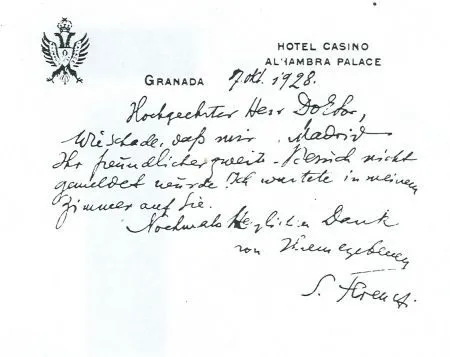 HOTEL CASINO
ALHAMBRA PALACE
GRANADA 7. Okt. 1928.
Hochgeehrter Herr Doktor,
Wie schade, daß mir Madrid
Ihr freundlicher zweit. Besuch nicht
gemeldet wurde. Ich wartete in meinem
Zimmer auf Sie.
Nochmals Herzlichen Dank
von Ihrem ergebenen
S. Ferenczi